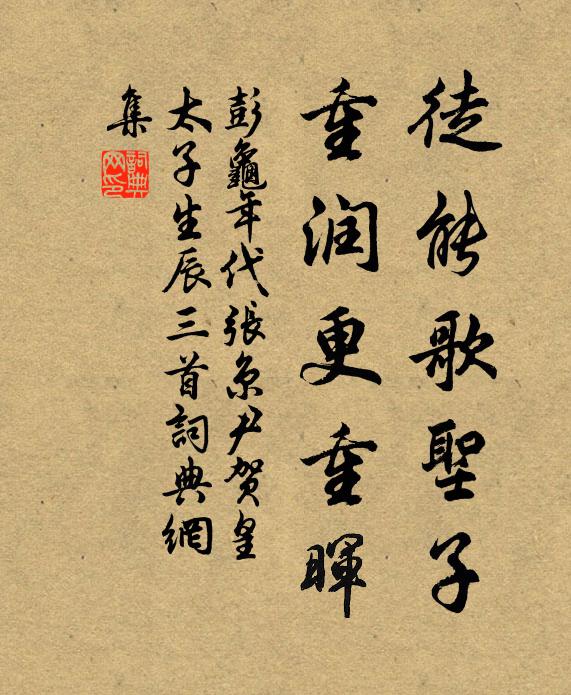 徒能歌聖子
重润更重暉
彭龜年代張京尹贺皇
太子生辰三首詞典網
集
詞典网印